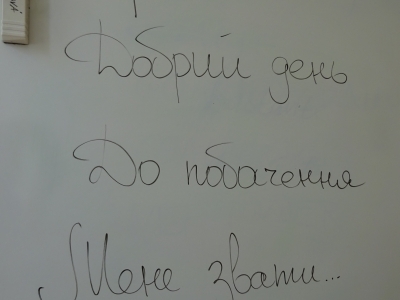 Добрий день
До побачення
Мене звати...